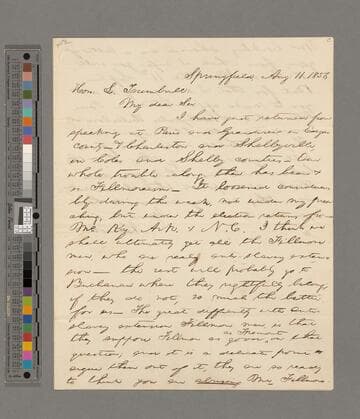 Springfield, Aug 11. 1856
Hon. L. Trumbull
My dear Sir
I have just returned from
speaking at Paris and Grandview in Edgar
county— & Charleston and Shelbyville,
in Coles and Shelby counties— Our
whole trouble along there has been &
is Fillmoreism— It loosened considera-
bly during the week, not under my prea-
ching, but under the election returns from
Mo. Ky. Ark. & N.C. I think we
shall ultimately get all the Fillmore
men, who are really anti-slavery exten-
sion— the rest will probably go to
Buchanan where they rightfully belong;
if they do not, so much the better
for us— The great difficulty with anti-
slavery extension Fillmore men is that
they suppose Fillmore as good as Fremont on that
question; and it is a delicate point to
argue them out of it, they are so ready
to think you are abusing Mr. Fillmore.